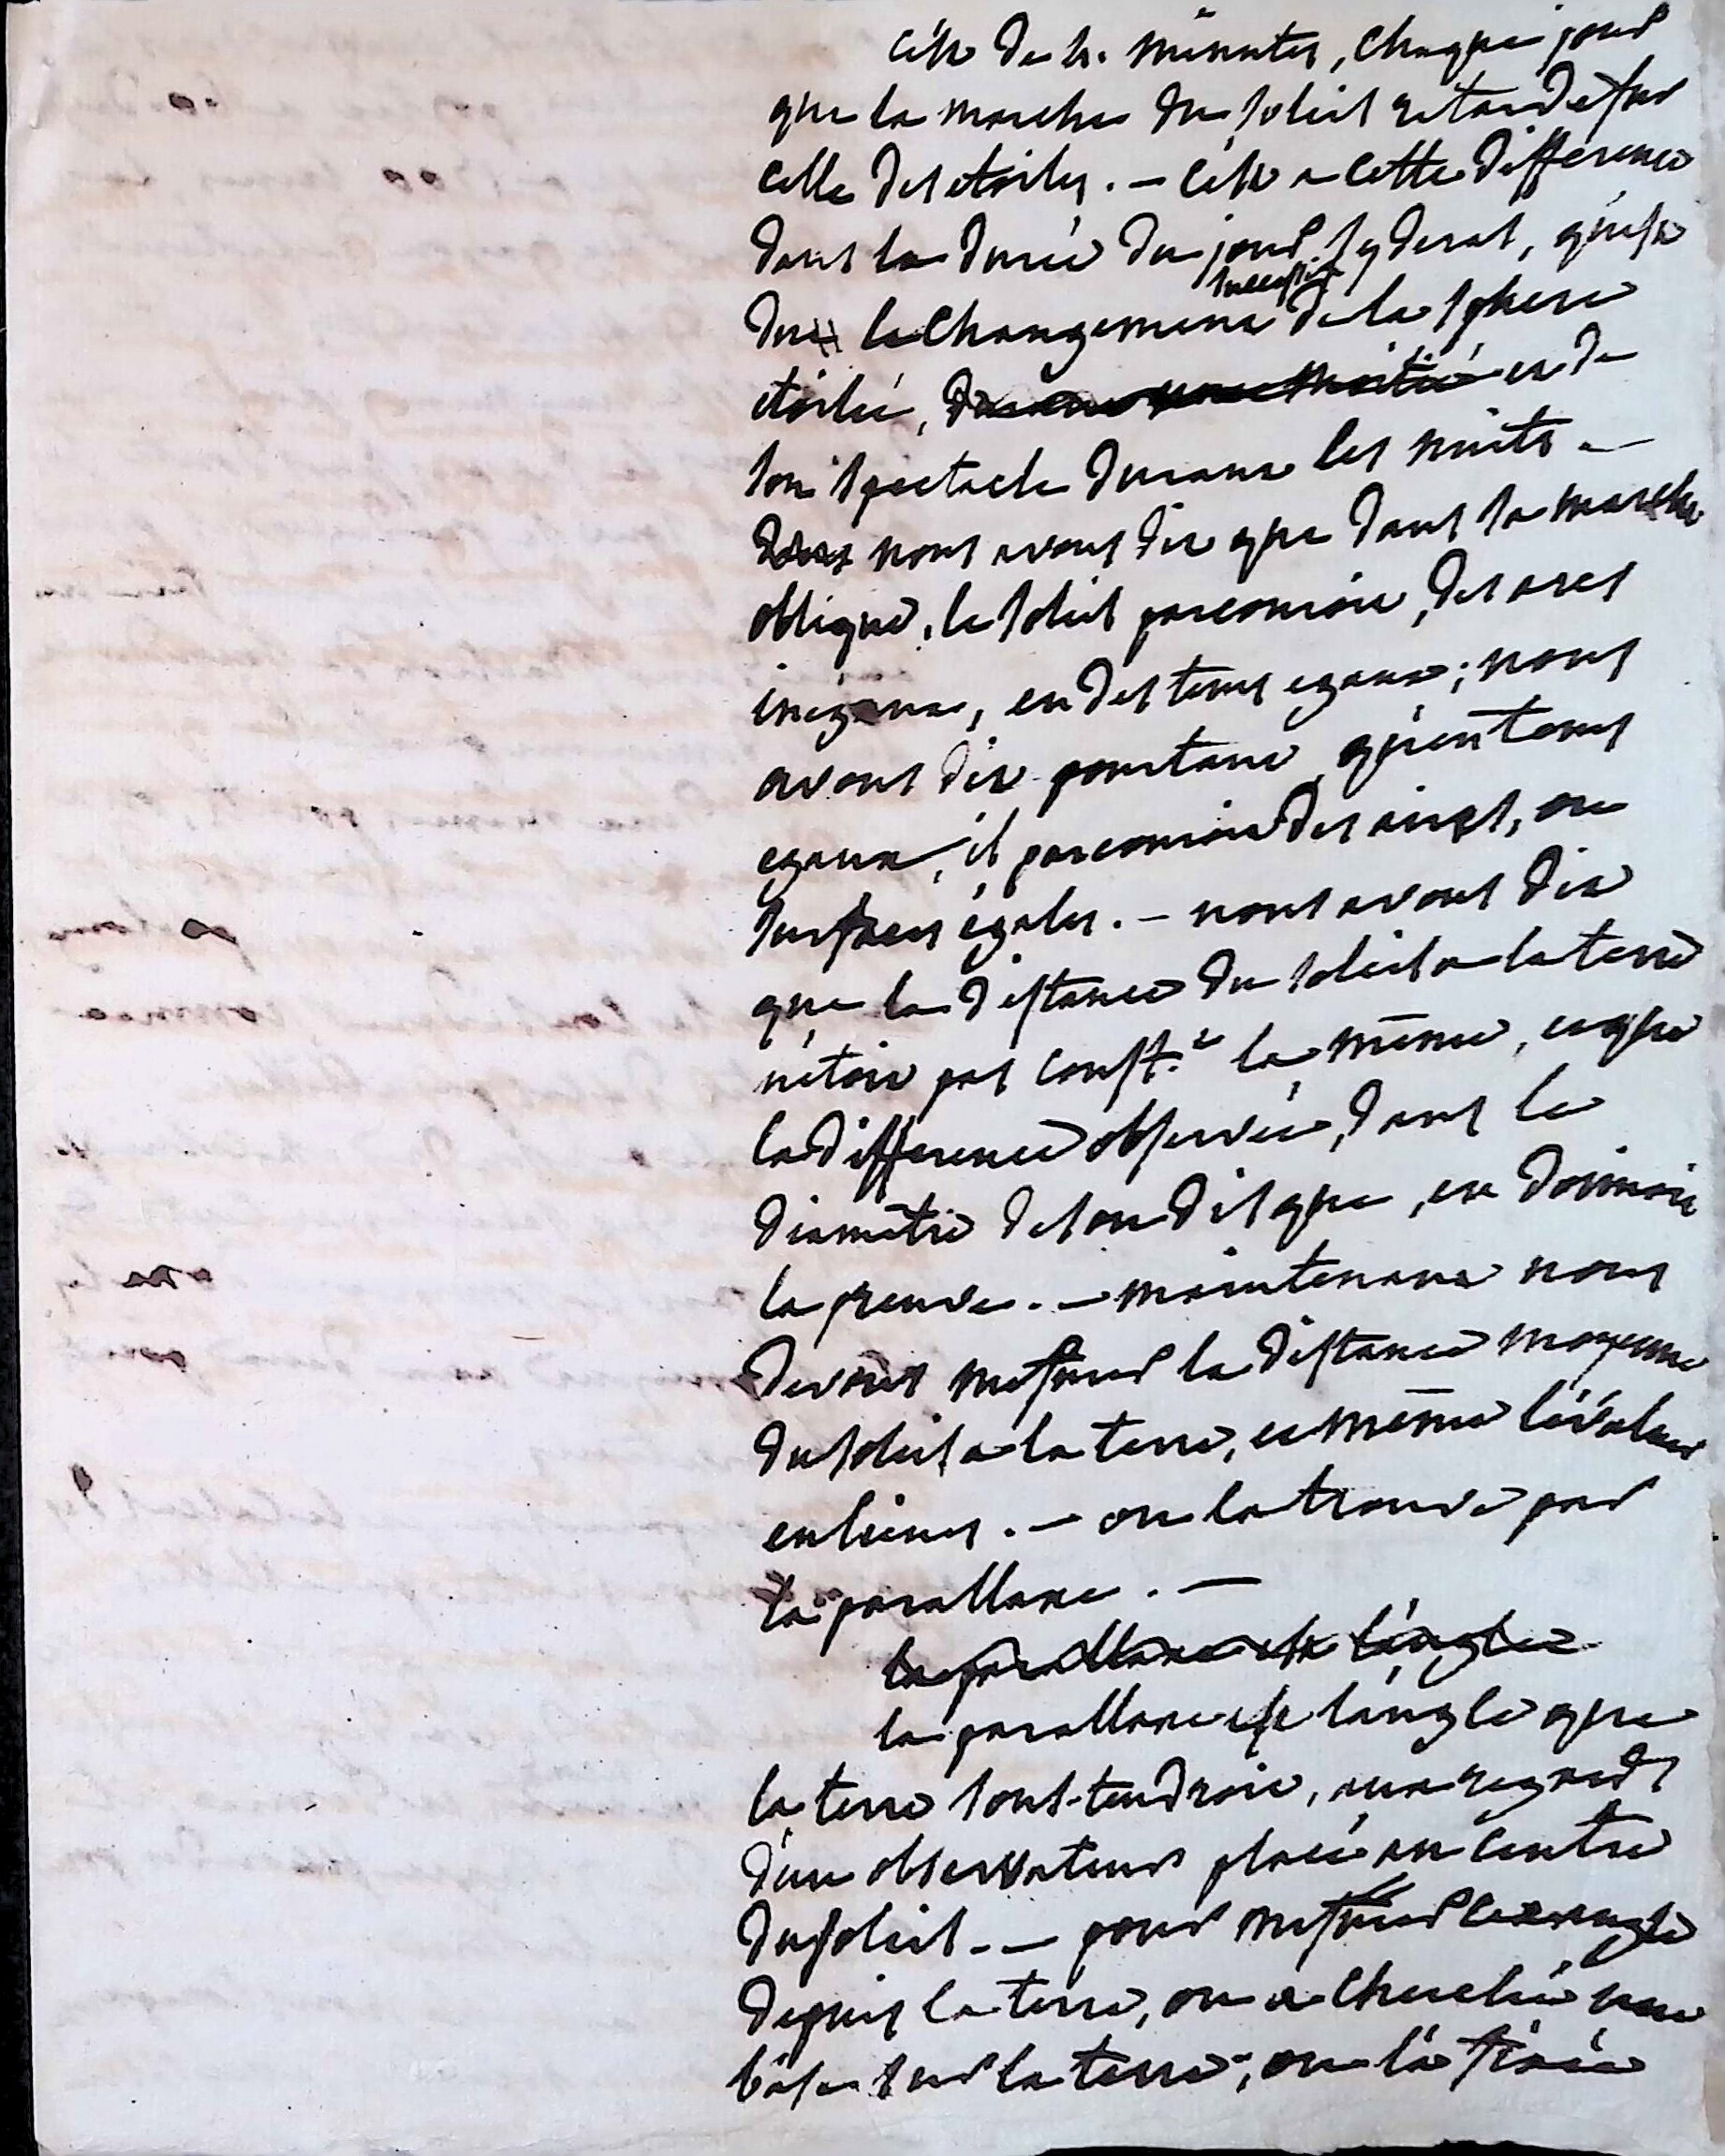 c'est de 4. minutes, chaque jour
que la marche du soleil retarde sur
celle des etoiles. — c'est a cette différence
dans la durée du jour syderal, qu'est
du le changement successif de la sphere
etoilée, et de
son spectacle durant les nuits —
nous avons dit que dans sa marche
oblique, le soleil parcouroit, des arcs
inégaux, en des tems egaux; nous
avons dit pourtant, qu'en tems
egaux, il parcouroit des aires, ou
surfaces égales. — nous avons dit
que la distance du soleil a la terre
n'étoit pas const.t la même, et que
la différence observée, dans le
diamètre de son disque, en donnoit
la preuve. — maintenant nous
devons mesurer la distance moyenne
du soleil a la terre, et même l'évaluer
en lieues. — on la trouve par
la parallaxe. —
la parallaxe est l'angle
la parallaxe est l'angle que
la terre sous-tendroit, aux regards
d'un observateur placé au centre
du soleil. — pour mesurer cet angle
depuis la terre, on a cherché une
bâse sur la terre, on l'a fixée